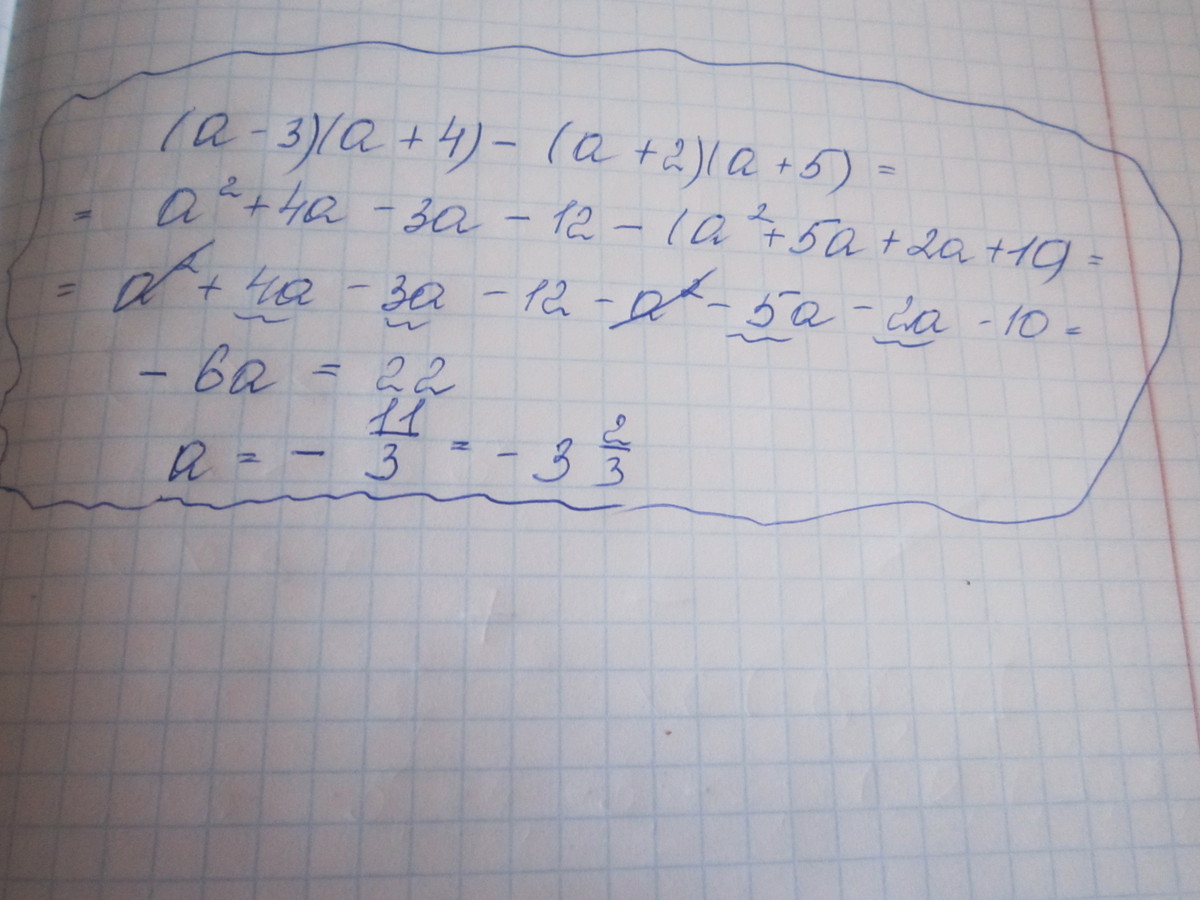 (a - 3)(a + 4) - (a + 2)(a + 5) =
= a² + 4a - 3a - 12 - (a² + 5a + 2a + 10) =
= a² + 4a - 3a - 12 - a² - 5a - 2a - 10 =
- 6a = 22
a = - 11/3 = - 3 2/3